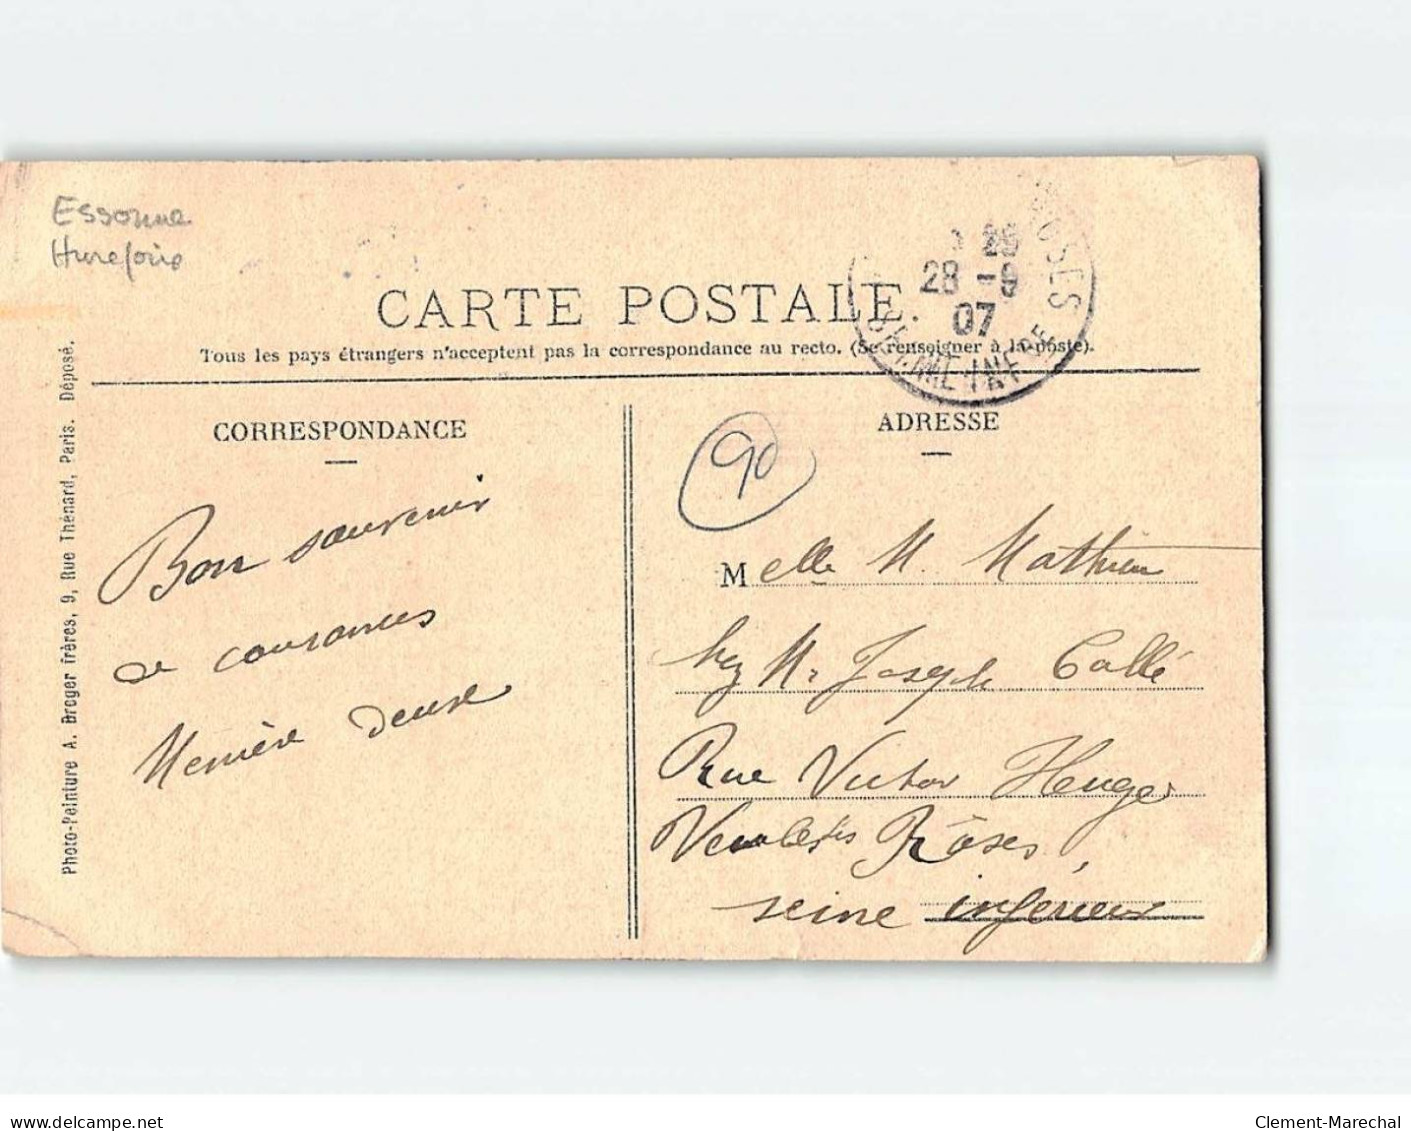 Essonne
Hurepoix
CARTE POSTALE.
Tous les pays étrangers n'acceptent pas la correspondance au recto. (Se renseigner à la poste).
28 -9
07
OSES
SEINE INFRE
CORRESPONDANCE
ADRESSE
90
Bon souvenir
de courances
deuxe
Melle M. Mathieu
chez Mr Joseph Callé
Rue Victor
Veules les Roses,
seine inferieur
Photo-Peinture A. Breger frères, 9, Rue Thénard, Paris. Déposé.
www.delcampe.net
Clement-Marechal